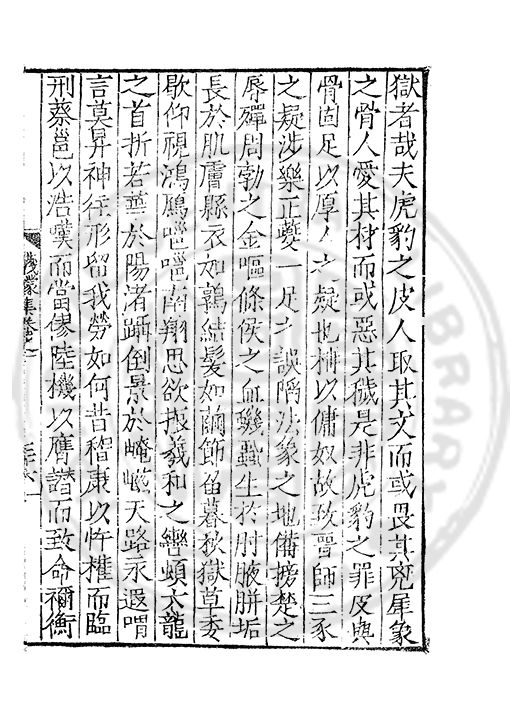 獄者哉夫虎豹之皮人取其文而或畏其兕犀象
之骨人愛其材而或惡其穢是非虎豹之罪皮與
骨固足以厚人之疑也稱以傭奴故攻晉師三豕
之疑涉樂正夔一足之誤陷法象之地備搒楚之
辱殫周勃之金嘔條侯之血蟣蝨生於肘腋胼垢
長於肌膚縣衣如鶉結髮如蘭節届暮秋獄草委
歇仰視鴻鴈嗈嗈南翔思欲振羲和之轡頓六龍
之首折若華於陽渚躡倒景於崦嵫天路永遐喟
言莫昇神往形留我勞如何昔嵇康以忤權而臨
刑蔡邕以浩嘆而當僇陸機以膺譖而致命禰衡
蠛蠓集卷